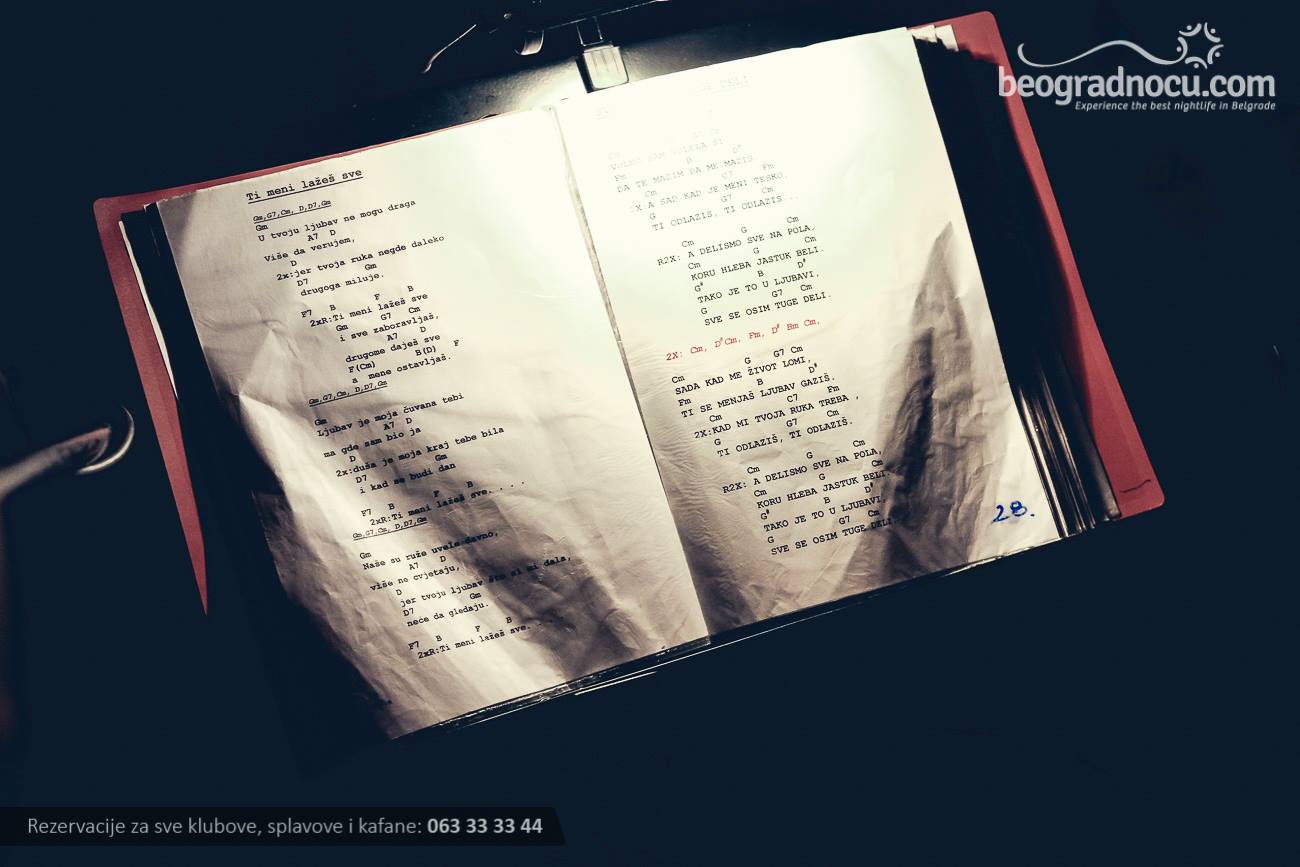 beogradnocu.com
Experience the best nightlife in Belgrade
Ti meni lažeš sve
Gm,G7,Cm, D,D7,Gm
Gm
U tvoju ljubav ne mogu draga
A7 D
Više da verujem,
D
2x:jer tvoja ruka negde daleko
D7 Gm
drugoga miluje.
F7 B F B
2xR:Ti meni lažeš sve
Gm G7 Cm
i sve zaboravljaš,
A7 D
drugome daješ sve
F(Cm) B(D) F
a mene ostavljaš.
Gm,G7,Cm, D,D7,Gm
Gm
Ljubav je moja čuvana tebi
A7 D
ma gde sam bio ja
D
2x:duša je moja kraj tebe bila
D7 Gm
i kad se budi dan
F7 B F B
2xR:Ti meni lažeš sve. . . .
Gm,G7,Cm, D,D7,Gm
Gm
Naše su ruže uvele davno,
A7 D
više ne cvjetaju,
D
jer tvoju ljubav što si mi dala,
D7 Gm
neće da gledaju.
F7 B F B
2xR:Ti meni lažeš sve. . . .
DELI
Cm
VOLEO SAM VOLELA SI
Fm B D#
DA TE MAZIM DA ME MAZIS
Cm C7 Fm
2X:A SAD KAD JE MENI TESKO,
G G7 Cm
TI ODLAZIS, TI ODLAZIS...
Cm G Cm
R2X: A DELISMO SVE NA POLA,
Cm G Cm
KORU HLEBA JASTUK BELI.
G# B D#
TAKO JE TO U LJUBAVI,
G G7 Cm
SVE SE OSIM TUGE DELI.
2X: Cm, D#Cm, Fm, D# Bm Cm,
Cm G G7 Cm
SADA KAD ME ŽIVOT LOMI,
Fm B D#
TI SE MENJAŠ LJUBAV GAZIŠ.
Cm C7 Fm
2X:KAD MI TVOJA RUKA TREBA ,
G G7 Cm
TI ODLAZIŠ, TI ODLAZIŠ.
Cm G Cm
R2X: A DELISMO SVE NA POLA,
Cm G Cm
KORU HLEBA JASTUK BELI.
G# B D#
TAKO JE TO U LJUBAVI,
G G7 Cm
SVE SE OSIM TUGE DELI.
28.
Rezervacije za sve klubove, splavove i kafane: 063 33 33 44